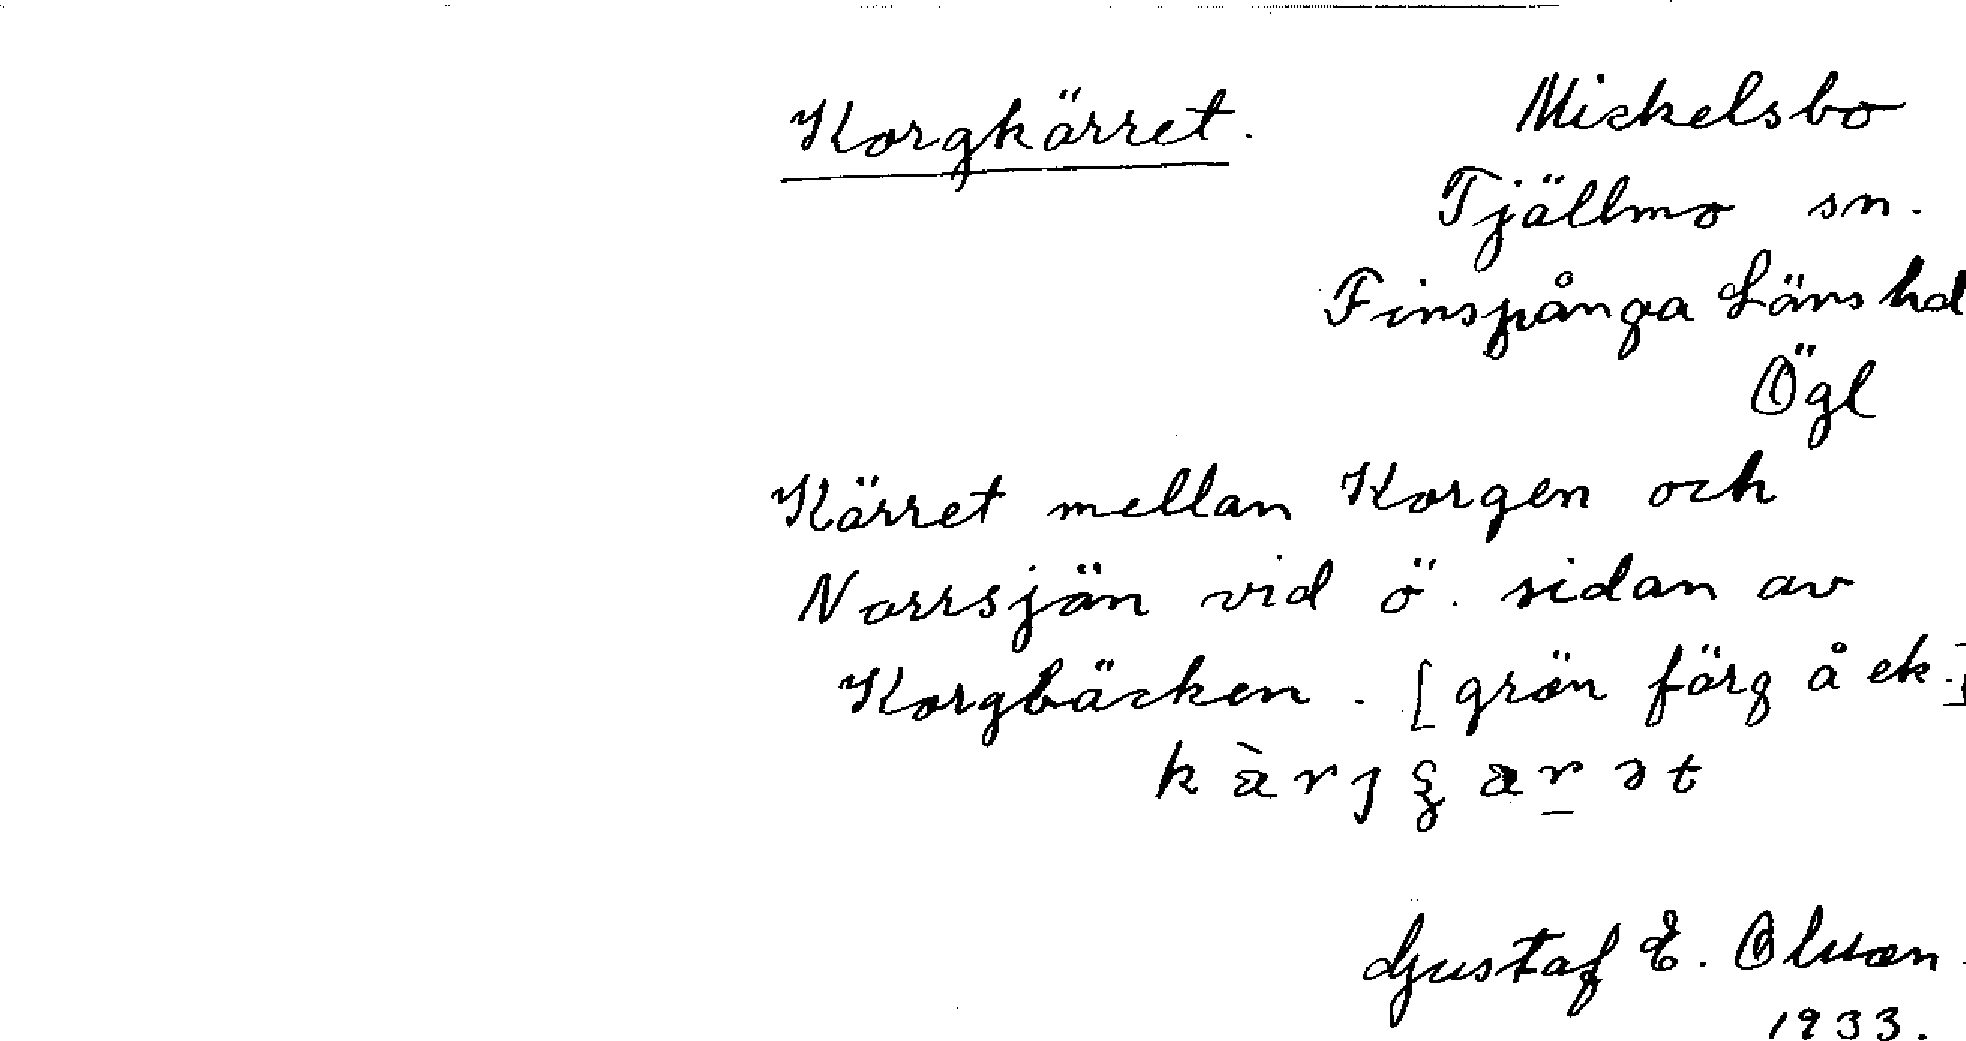 Korgkärret.
Mickelsbo
Tjällmo sn.
Finspånga Läns hd
Ögl
Kärret mellan Korgen och
Norrsjön vid ö. sidan av
Korgbäcken. [grön färg å ek.]
Gustaf E. Olsson.
1933.